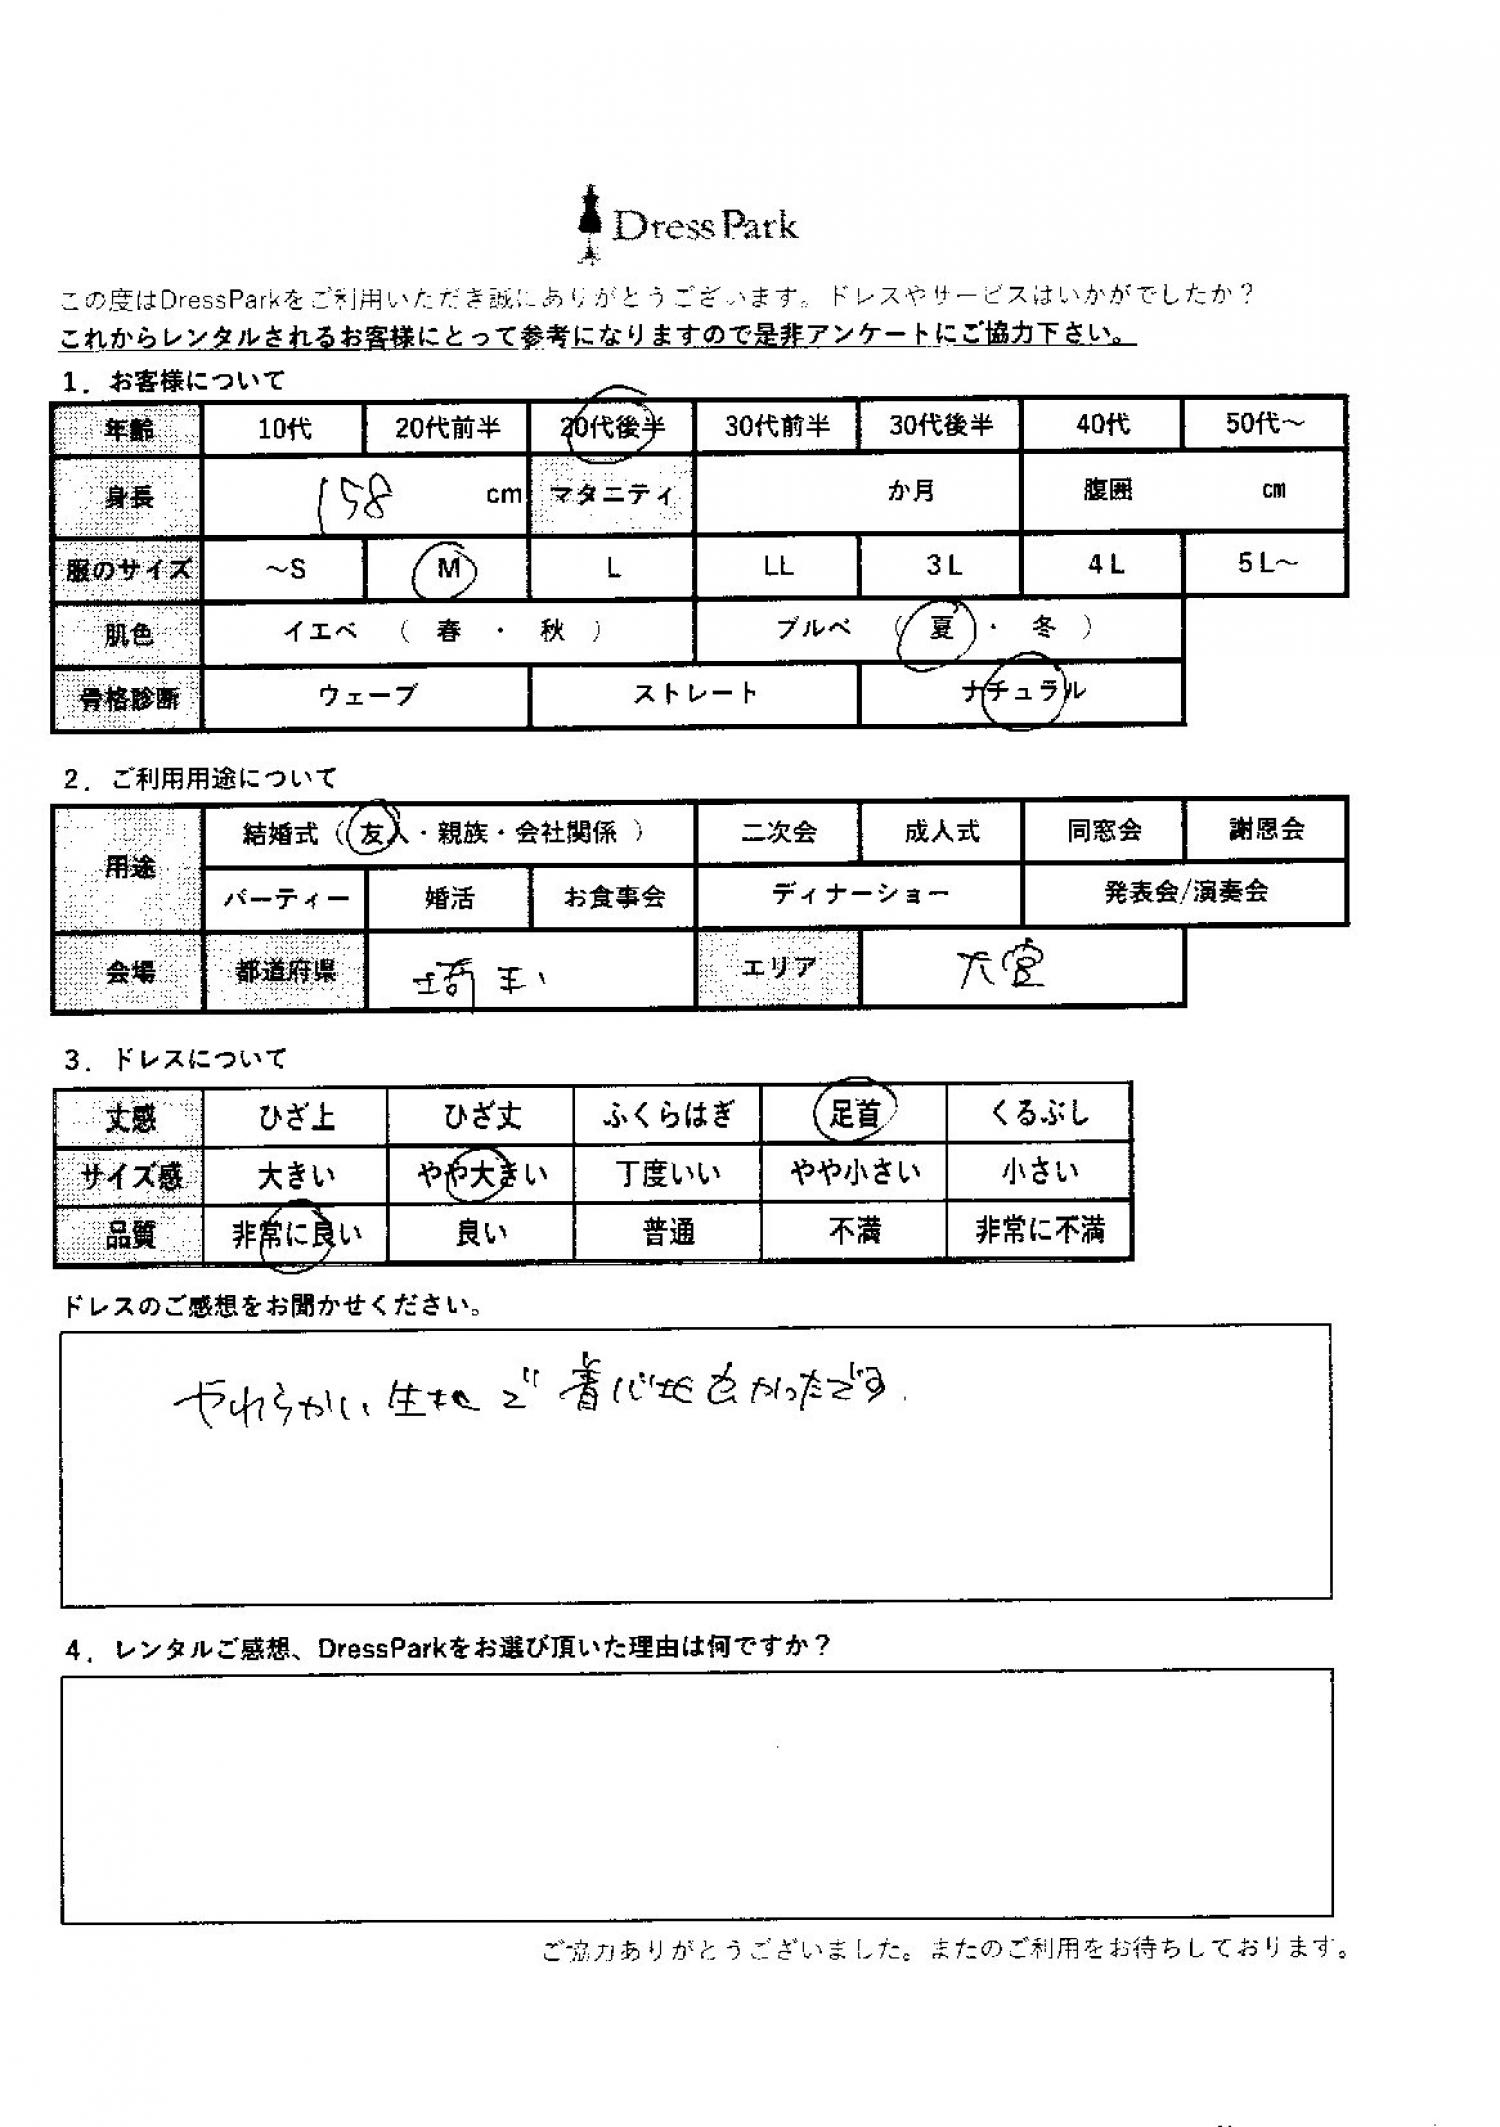 DressPark
この度はDressParkをご利用いただき誠にありがとうございます。ドレスやサービスはいかがでしたか？
これからレンタルされるお客様にとって参考になりますので是非アンケートにご協力下さい。
1．お客様について
年齢 10代 20代前半 20代後半 30代前半 30代後半 40代 50代～
身長 158 cm マタニティ か月 腹囲 cm
服のサイズ ～S M L LL 3L 4L 5L～
肌色 イエベ （ 春 ・ 秋 ） ブルベ （ 夏 ・ 冬 ）
骨格診断 ウェーブ ストレート ナチュラル
2．ご利用用途について
用途 結婚式（友人・親族・会社関係 ） 二次会 成人式 同窓会 謝恩会
パーティー 婚活 お食事会 ディナーショー 発表会/演奏会
会場 都道府県 埼玉 エリア 大宮
3．ドレスについて
丈感 ひざ上 ひざ丈 ふくらはぎ 足首 くるぶし
サイズ感 大きい やや大きい 丁度いい やや小さい 小さい
品質 非常に良い 良い 普通 不満 非常に不満
ドレスのご感想をお聞かせください。
やわらかい生地で着心地も良かったです。
4．レンタルご感想、DressParkをお選び頂いた理由は何ですか？
ご協力ありがとうございました。またのご利用をお待ちしております。